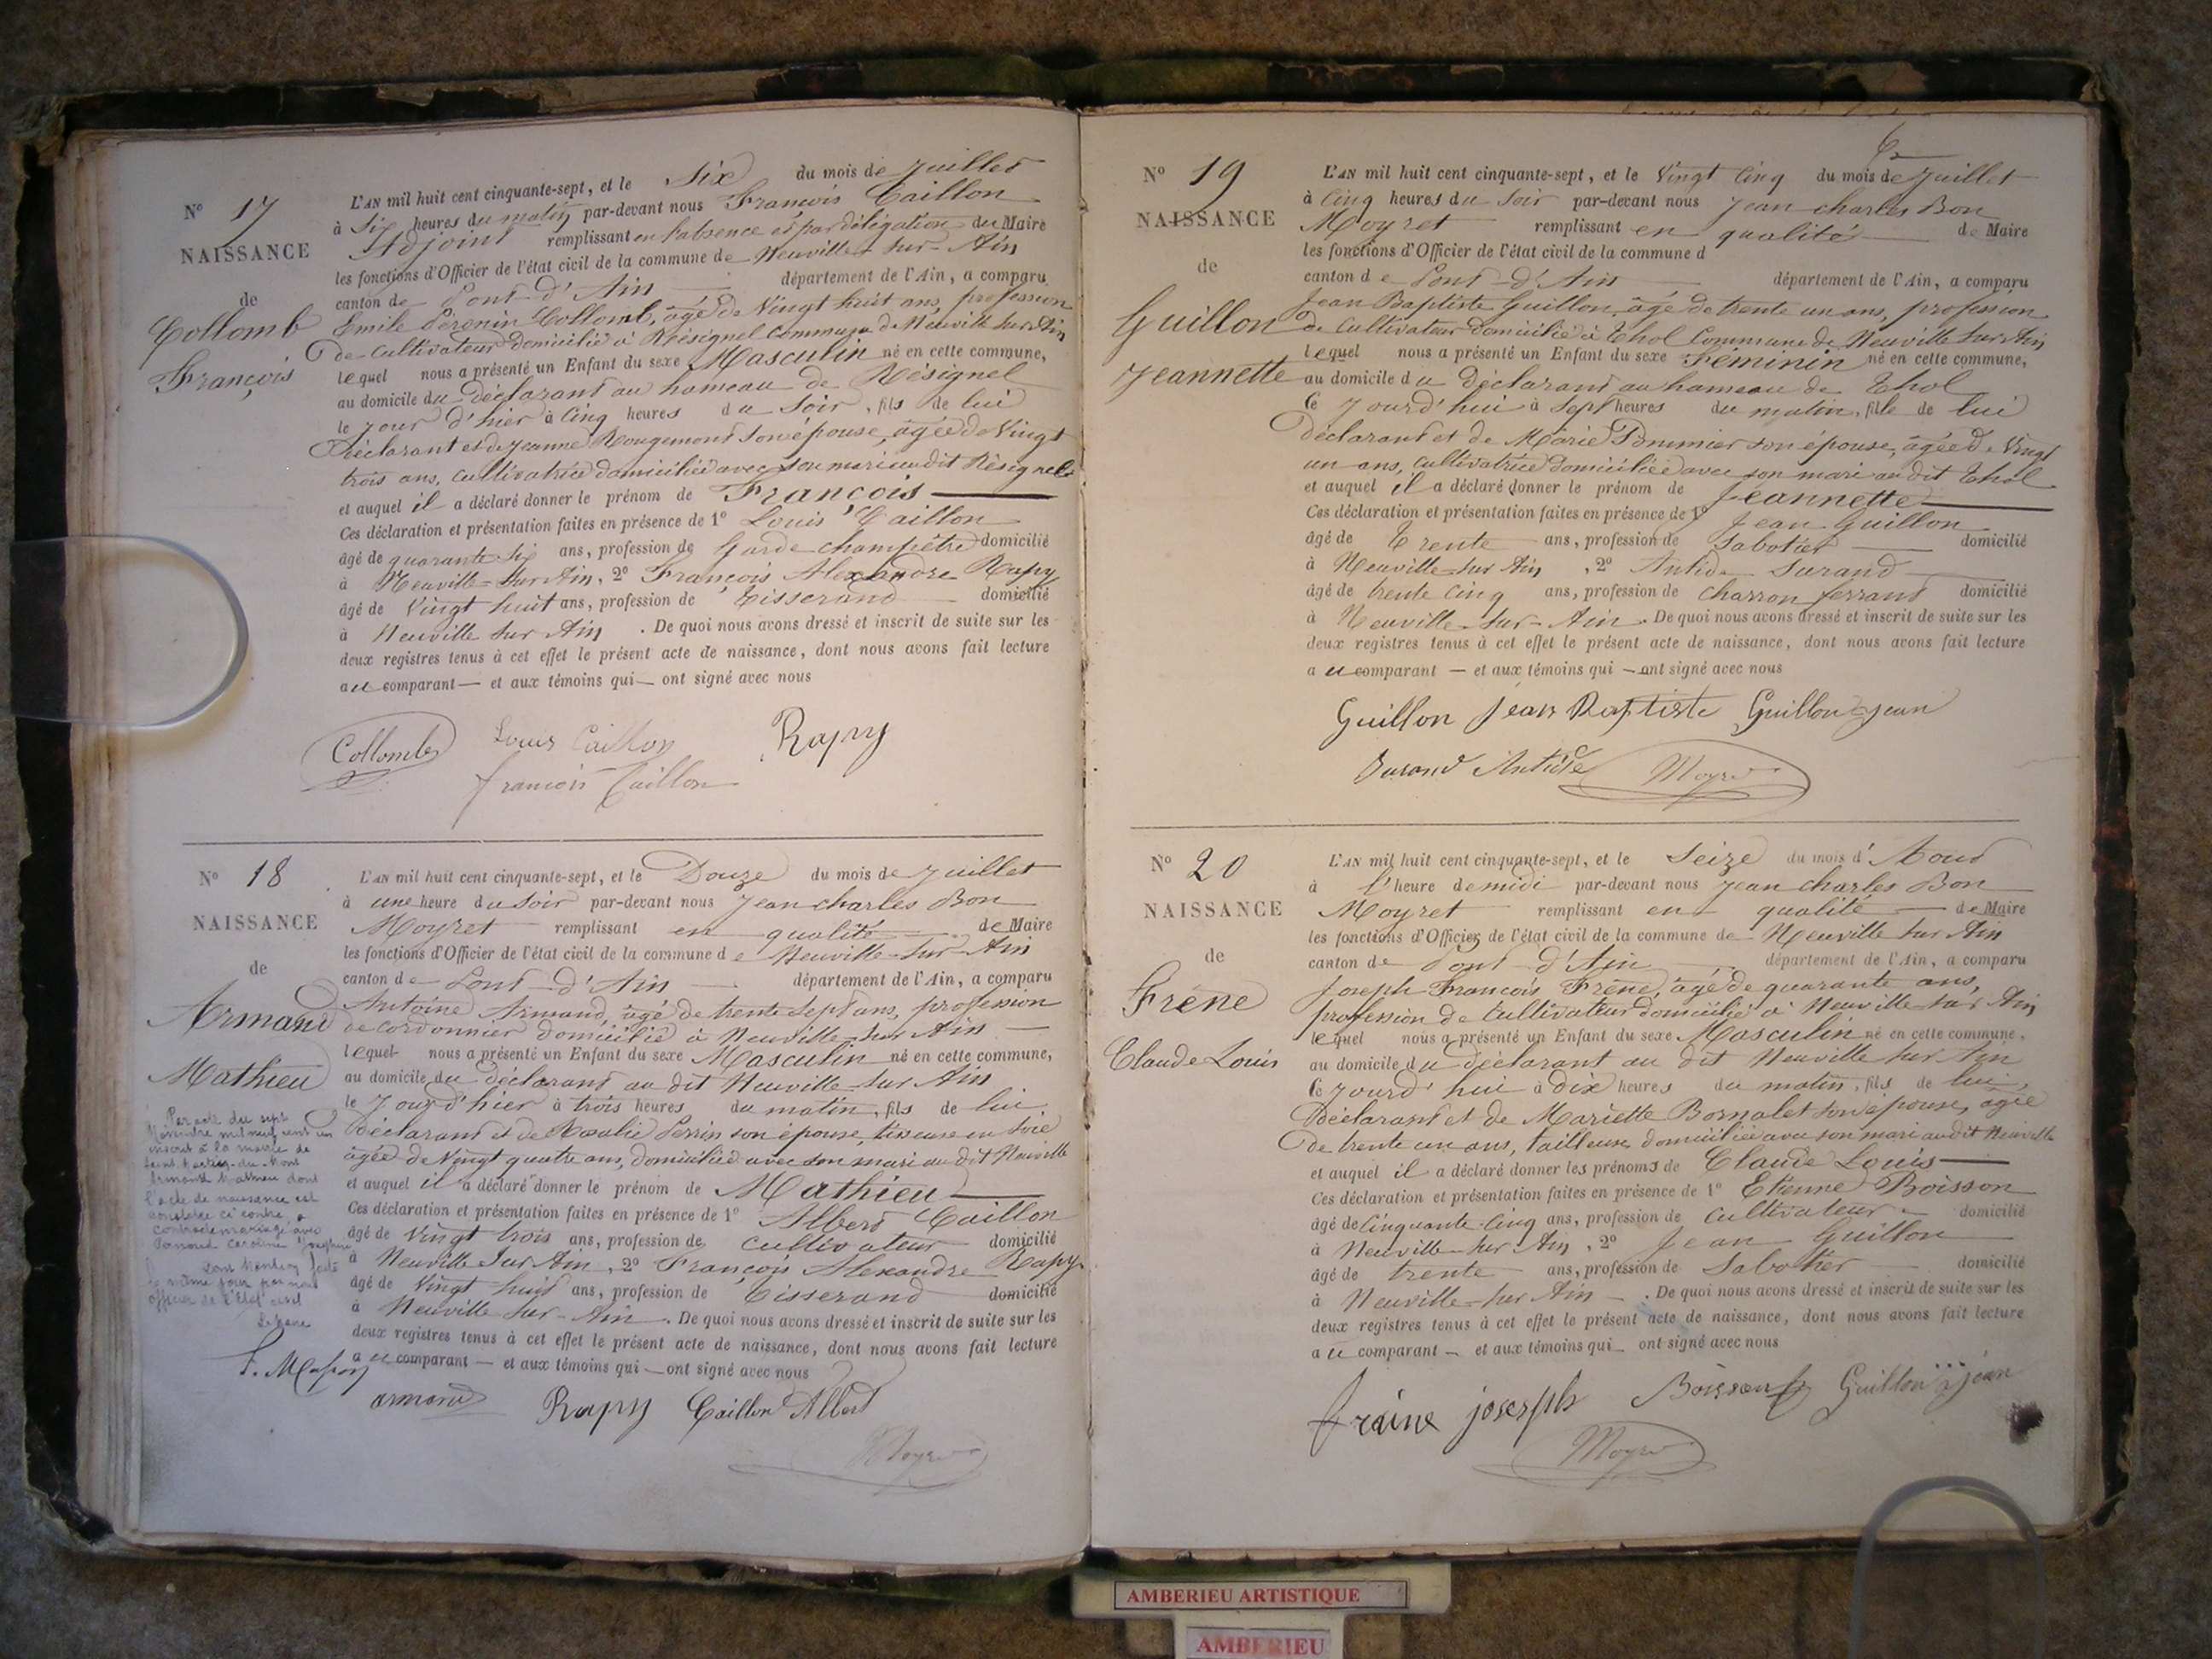 N° 17
NAISSANCE
de
Collomb
François
L'AN mil huit cent cinquante-sept, et le Six du mois de Juillet
à Six heures du matin par-devant nous François Caillon
Adjoint remplissant en l'absence et par délégation du Maire
les fonctions d'Officier de l'état civil de la commune de Neuville sur Ain
canton de Pont-d'Ain département de l'Ain, a comparu
Emile Collomb, âgé de Vingt huit ans, profession
de cultivateur domicilié à Résignel Commune de Neuville sur Ain
lequel nous a présenté un Enfant du sexe Masculin né en cette commune,
au domicile du Déclarant au hameau de Résignel
le jour d'hier à Cinq heures du Soir, fils de lui
Déclarant et de Jeanne Rougemont son épouse, âgée de Vingt
trois ans, cultivatrice domiciliée avec son mari audit Résignel
et auquel il a déclaré donner le prénom de François
Ces déclaration et présentation faites en présence de 1° Louis Caillon
âgé de quarante six ans, profession de Garde champêtre domicilié
à Neuville-sur Ain, 2° François Alexandre Rapy
âgé de Vingt huit ans, profession de Tisserand domicilié
à Neuville sur Ain. De quoi nous avons dressé et inscrit de suite sur les
deux registres tenus à cet effet le présent acte de naissance, dont nous avons fait lecture
au comparant — et aux témoins qui — ont signé avec nous
Collomb Louis Caillon Rapy
françois Caillon
N° 18
NAISSANCE
de
Armand
Mathieu
L'AN mil huit cent cinquante-sept, et le Douze du mois de Juillet
à une heure du Soir par-devant nous Jean charles Bon
Moyret remplissant en qualité de Maire
les fonctions d'Officier de l'état civil de la commune de Neuville-sur-Ain
canton de Pont-d'Ain département de l'Ain, a comparu
Antoine Armand, âgé de trente Sept ans, profession
de cordonnier domicilié à Neuville-sur Ain
lequel nous a présenté un Enfant du sexe Masculin né en cette commune,
au domicile du déclarant au dit Neuville-sur Ain
le jour d'hier à trois heures du matin, fils de lui
Déclarant et de Rosalie Perrin son épouse, tisseuse en Soie
âgée de Vingt quatre ans, domiciliée avec son mari au dit Neuville
et auquel il a déclaré donner le prénom de Mathieu
Ces déclaration et présentation faites en présence de 1° Albert Caillon
âgé de Vingt trois ans, profession de cultivateur domicilié
à Neuville Sur Ain, 2° François Alexandre Rapy
âgé de Vingt huit ans, profession de Tisserand domicilié
à Neuville sur-Ain. De quoi nous avons dressé et inscrit de suite sur les
deux registres tenus à cet effet le présent acte de naissance, dont nous avons fait lecture
au comparant — et aux témoins qui — ont signé avec nous
armand Rapy Caillon Albert
Moyret
Par acte du sept
mil neuf cent un
inscrit à la mairie de
Saint Martin-du-Mont
Armand Mathieu dont
l'acte de naissance est
ci contre a
contracté mariage avec
Caroline
Mention faite
le même jour par nous
officier de l'Etat civil
N° 19
NAISSANCE
de
Guillon
Jeannette
L'AN mil huit cent cinquante-sept, et le Vingt Cinq du mois de Juillet
à Cinq heures du Soir par-devant nous Jean charles Bon
Moyret remplissant en qualité de Maire
les fonctions d'Officier de l'état civil de la commune d
canton de Pont-d'Ain département de l'Ain, a comparu
Jean Baptiste Guillon, âgé de trente un ans, profession
de Cultivateur domicilié à Thol Commune de Neuville sur Ain
lequel nous a présenté un Enfant du sexe Féminin né en cette commune,
au domicile du Déclarant au hameau de Thol
Ce jourd'hui à Sept heures du matin, fille de lui
Déclarant et de Marie Pommier son épouse, âgée de Vingt
un ans, cultivatrice domiciliée avec son mari au dit Thol
et auquel il a déclaré donner le prénom de Jeannette
Ces déclaration et présentation faites en présence de 1° Jean Guillon
âgé de Trente ans, profession de Sabotier domicilié
à Neuville-sur Ain, 2° Antide Durand
âgé de trente Cinq ans, profession de Charron ferrant domicilié
à Neuville-sur-Ain. De quoi nous avons dressé et inscrit de suite sur les
deux registres tenus à cet effet le présent acte de naissance, dont nous avons fait lecture
au comparant — et aux témoins qui — ont signé avec nous
Guillon Jean Baptiste Guillon jean
Durand Antide Moyret
N° 20
NAISSANCE
de
Frène
Claude Louis
L'AN mil huit cent cinquante-sept, et le Seize du mois d'Aout
à l'heure de midi par-devant nous Jean charles Bon
Moyret remplissant en qualité de Maire
les fonctions d'Officier de l'état civil de la commune de Neuville sur Ain
canton de Pont-d'Ain département de l'Ain, a comparu
Joseph François Frène, âgé de quarante ans,
profession de Cultivateur domicilié à Neuville sur Ain
lequel nous a présenté un Enfant du sexe Masculin né en cette commune,
au domicile du déclarant au dit Neuville sur Ain
Ce jourd'hui à dix heures du matin, fils de lui,
Déclarant et de Mariette Bornalet son épouse, âgée
de trente un ans, tailleuse domiciliée avec son mari au dit Neuville
et auquel il a déclaré donner les prénoms de Claude Louis
Ces déclaration et présentation faites en présence de 1° Etienne Boisson
âgé de Cinquante-Cinq ans, profession de Cultivateur domicilié
à Neuville-sur Ain, 2° Jean Guillon
âgé de trente ans, profession de Sabotier domicilié
à Neuville-sur Ain. De quoi nous avons dressé et inscrit de suite sur les
deux registres tenus à cet effet le présent acte de naissance, dont nous avons fait lecture
au comparant — et aux témoins qui ont signé avec nous
fraine joseph Boisson Guillon jean
Moyret
AMBERIEU ARTISTIQUE
AMBERIEU